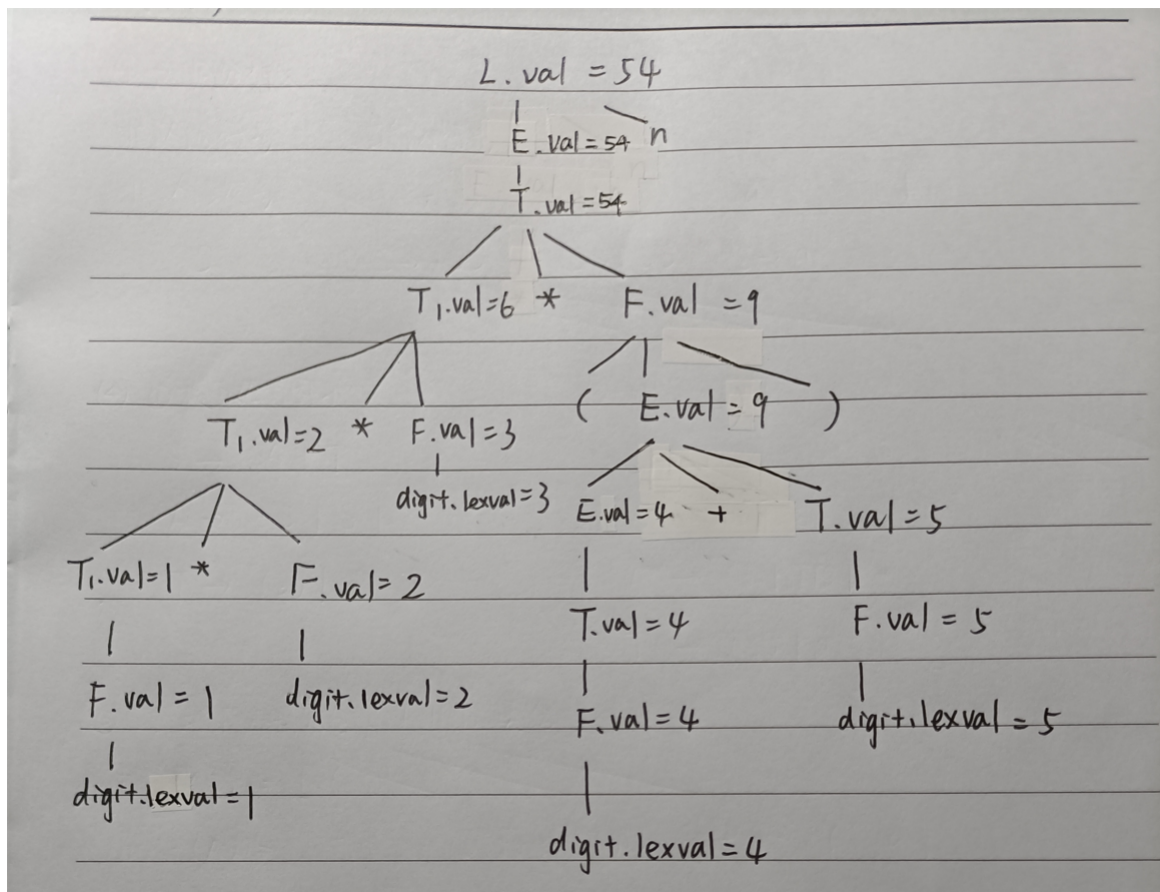 L.val = 54
E.val=54 n
T.val=54
T₁.val=6 * F.val = 9
( E.val=9 )
T₁.val=2 * F.val=3
digit.lexval=3 E.val=4 + T.val=5
T₁.val=1 * F.val=2
T.val=4 F.val = 5
F.val=1 digit.lexval=2 F.val=4 digit.lexval=5
digit.lexval=1
digit.lexval=4